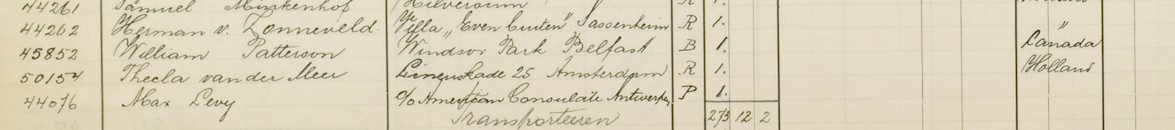 44261 Samuel Munkenhof Hilversum R 1.
44262 Herman v. Zonneveld. Villa „Even Buiten" Sassenheim R 1. "
45852 William Patterson Windsor Park Belfast B 1. Canada
50154 Thecla van der Meer Amsterdam R 1. Holland
44076 Max Levy c/o American Consulate Antwerpen P 1.
Transporteeren 273 12 2